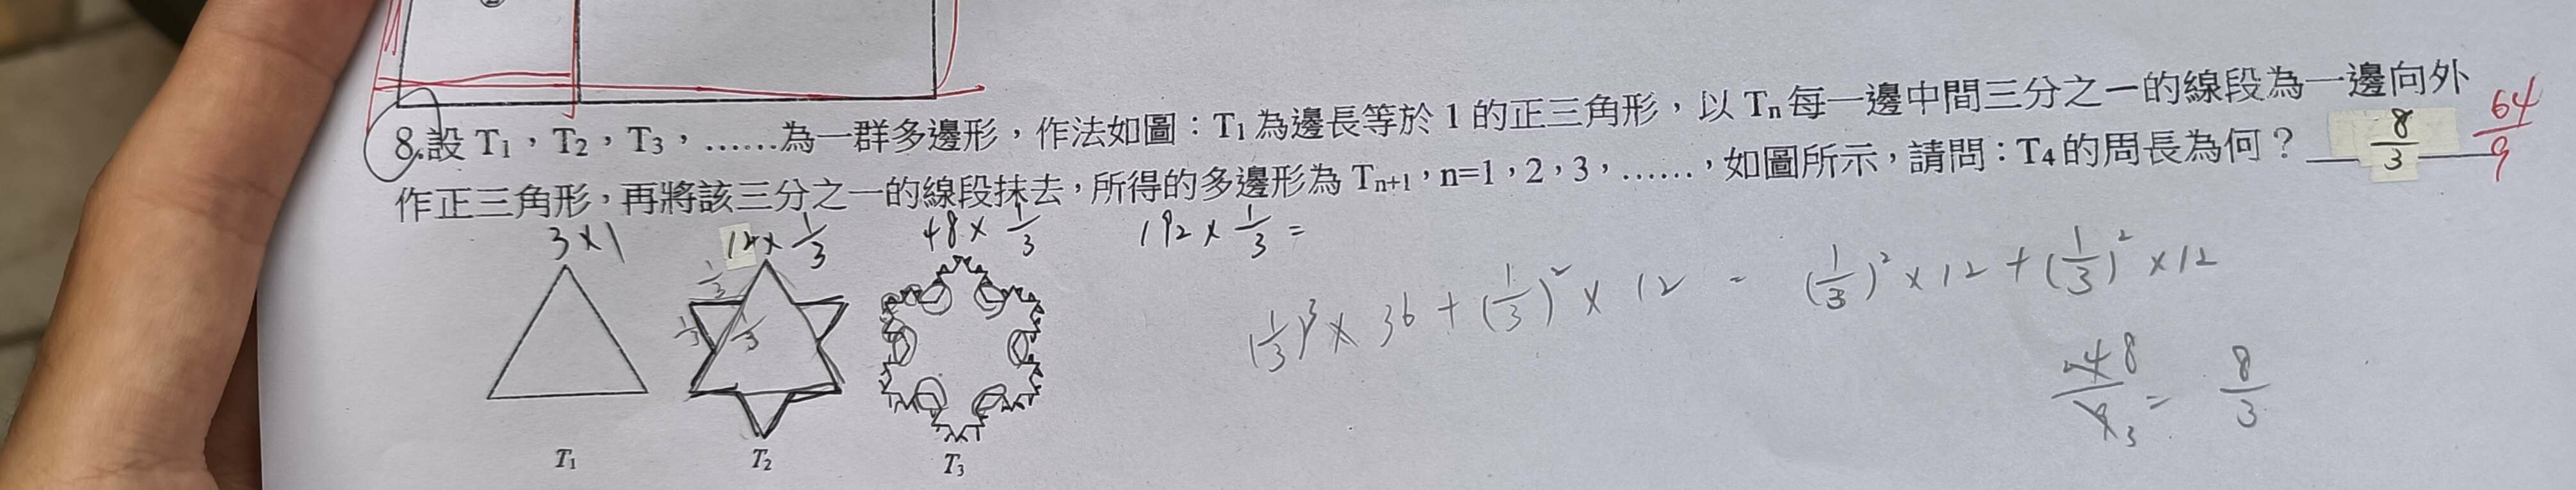 8.設 T1,T2,T3,……為一群多邊形,作法如圖:T1為邊長等於 1 的正三角形,以 Tn每一邊中間三分之一的線段為一邊向外
作正三角形,再將該三分之一的線段抹去,所得的多邊形為 Tn+1,n=1,2,3,……,如圖所示,請問:T4的周長為何? 8/3 64/9
3×1 12×1/3 48×1/3 192×1/3=
1/3
1/3 1/3
(1/3)³×36+(1/3)²×12 = (1/3)²×12+(1/3)²×12
48/9 3 = 8/3
T1 T2 T3